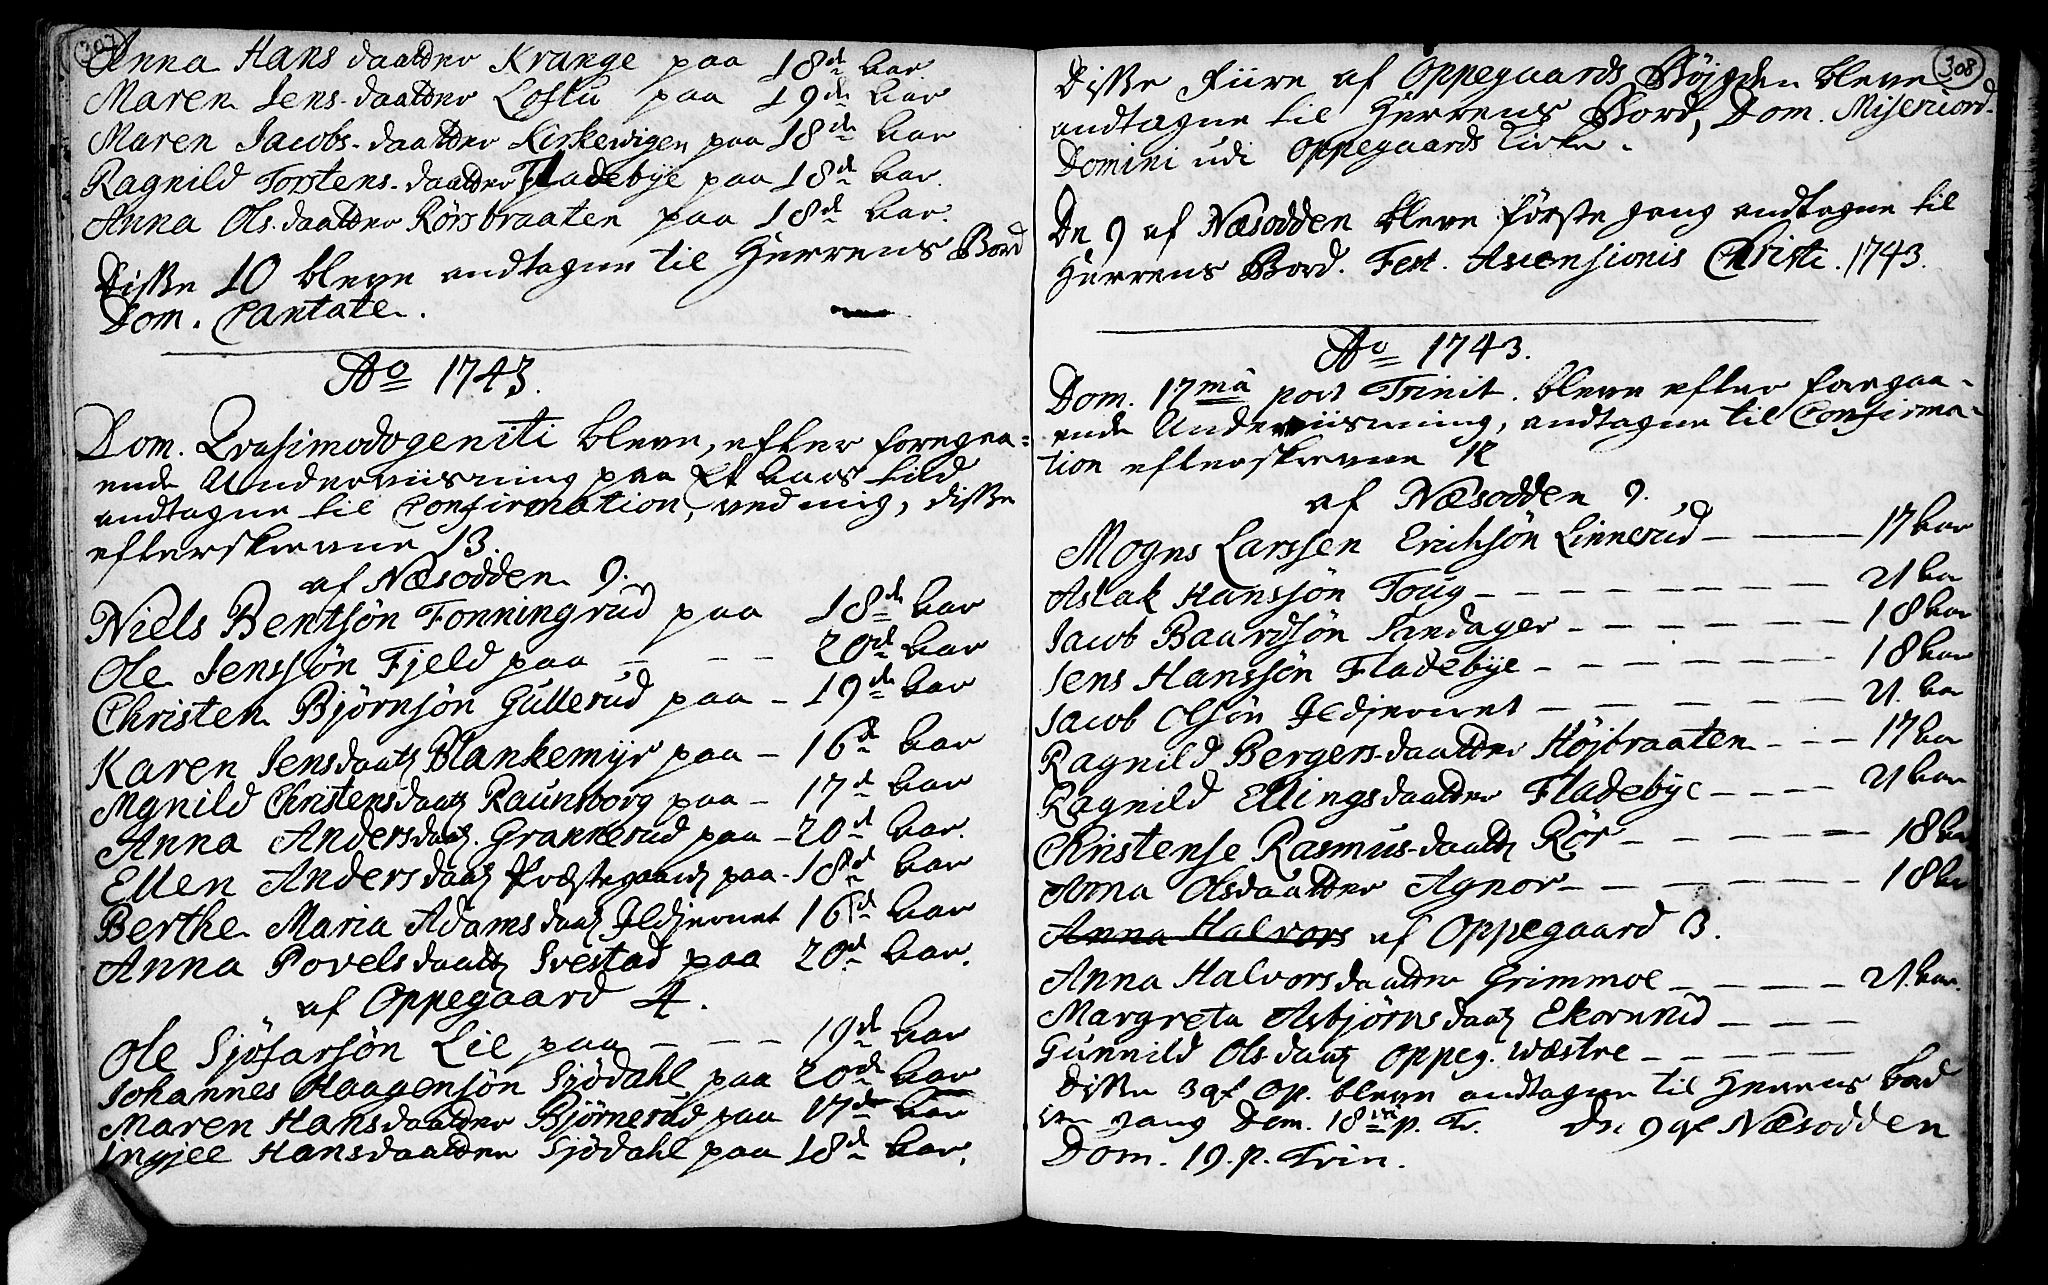 307
Anna Hans daatter Krange paa 18de Aar
Maren Jens-daatter Loftu paa 19de Aar
Maren Jacobs-daatter Kirkewigen paa 18de Aar
Ragnild Torstens-daatter Fladebÿe paa 18de Aar.
Anna Ols-daatter Rörsbraaten paa 18de Aar.
Disse 10 bleve andtagne til Herrens Bord
Dom. Cantate.
Ao 1743.
Dom. Qvasimodogeniti bleve, efter foregaa-
ende Underviisning paa Et Aars tild
andtagne til Confirmation, ved mig, disse
efterskrevne 13.
af Næsodden 9.
Niels Bentsön Fonningrud paa 18de Aar
Ole Jenssön Fjeld paa - - - 20de Aar
Christen Björnsön Gullerud paa - 19de Aar
Karen Jensdaatr Blankemÿr paa - 16de Aar
Mgnild Christensdaatr Raunsborg paa - 17de Aar
Anna Andersdaatr. Grannerud paa - 20de Aar.
Ellen Andersdaatr Præstegaard paa - 18de Aar
Berthe Maria Adamsdaatr Ildjernet 16de Aar
Anna Povelsdaatr Svestad paa 20de Aar.
af Oppegaard 4.
Ole Sjöfarsön Lie paa - - - 19de Aar
Johannes Haagensön Sjödahl paa 20de Aar
Maren Hansdaatter Björnerud paa 17de Aar
Ingjee Hansdaatter Sjödahl paa 18de Aar.
308
Disse Fiire af Oppegaards Böjgden bleve
andtagne til Herrens Bord, Dom. Misericord.
Domini udi Oppegaards Kirke.
De 9 af Næsodden bleve förste gang andtagne til
Herrens Bord. Fest. Ascensionis Christi. 1743.
Ao 1743.
Dom. 17ma post Trinit. bleve efter foregaa-
ende Underviisning, andtagne til Confirma-
tion efterskrevne 12
af Næsodden 9.
Mogns Larssen Eriksön Linnerud - - 17 Aar
Aslak Hanssön Toug - - - - - - - 21 Aar
Jacob Baardsön Sandager - - - - - - 18 Aar
Jens Hanssön Fladebÿe - - - - - - - 18 Aar
Jacob Olsön Ildjernet - - - - - - 21. Aar
Ragnild Bergers-daatter Höjbraaten - - - 17 Aar
Ragnild Ellingsdaatter Fladebÿe - - - - 21 Aar
Christense Rasmus-daatr Rör - - - - - 18 Aar
Anna Olsdaatter Agnor - - - - - - 18 Aar
Anna Halvors af Oppegaard 3.
Anna Halvorsdaatter Grimmoe - - - - 21. Aar.
Margreta Asbjörnsdaatr Ekornrud - - -
Gunnild Olsdaatr Oppeg. Wæstre - - - - -
Disse 3 af Op. bleve andtagne til Herrens Bord
gang Dom. 18 p. Tr. De 9 af Næsodden
Dom. 19. p. Trin.